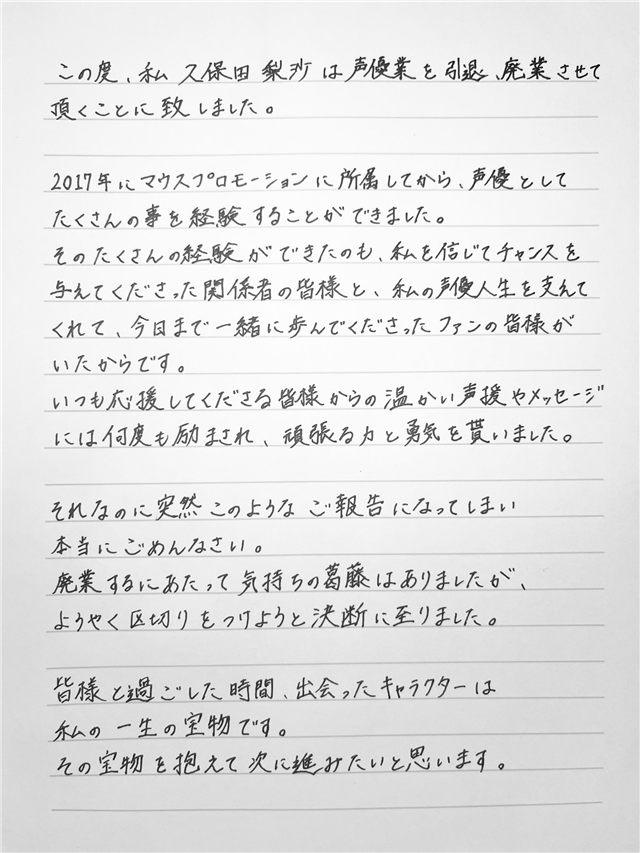 この度、私 久保田 梨沙 は声優業を引退、廃業させて
頂くことに致しました。
2017年にマウスプロモーションに所属してから、声優として
たくさんの事を経験することができました。
そのたくさんの経験ができたのも、私を信じてチャンスを
与えてくださった関係者の皆様と、私の声優人生を支えて
くれて、今日まで一緒に歩んでくださったファンの皆様が
いたからです。
いつも応援してくださる皆様からの温かい声援やメッセージ
には何度も励まされ、頑張る力と勇気を貰いました。
それなのに突然このようなご報告になってしまい
本当にごめんなさい。
廃業するにあたって気持ちの葛藤はありましたが、
ようやく区切りをつけようと決断に至りました。
皆様と過ごした時間、出会ったキャラクターは
私の一生の宝物です。
その宝物を抱えて次に進みたいと思います。